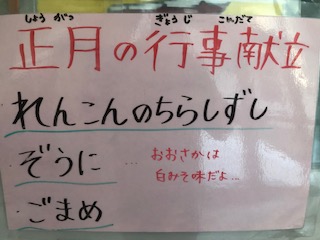 しょう がつ ぎょうじ こんだて
正月の行事献立
れんこんのちらしずし
ぞうに
… おおさかは
白みそ味だよ…
ごまめ